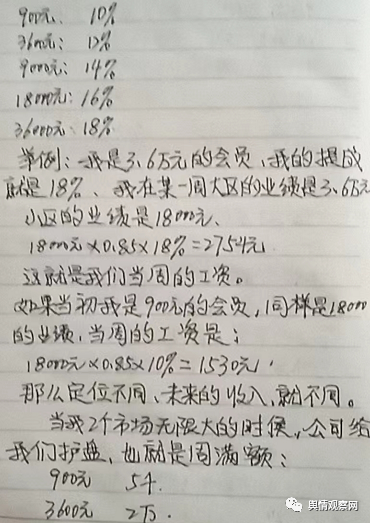 900元: 10%
3600元: 12%
9000元: 14%
18000元: 16%
36000元: 18%
举例:我是3.6万元的会员、我的提成
就是18%、我在某一周大区的业绩是3.6万元
小区的业绩是18000元、
18000元×0.85×18%=2754元
这就是我们当周的工资。
如果当初我是900元的会员,同样是18000
的业绩,当周的工资是:
18000元×0.85×10%=1530元.
那么定位不同、未来的收入,就不同。
当我2个市场无限大的时侯,公司给
我们护盘,也就是周满额:
900元 5千.
3600元 2万.
舆情观察网